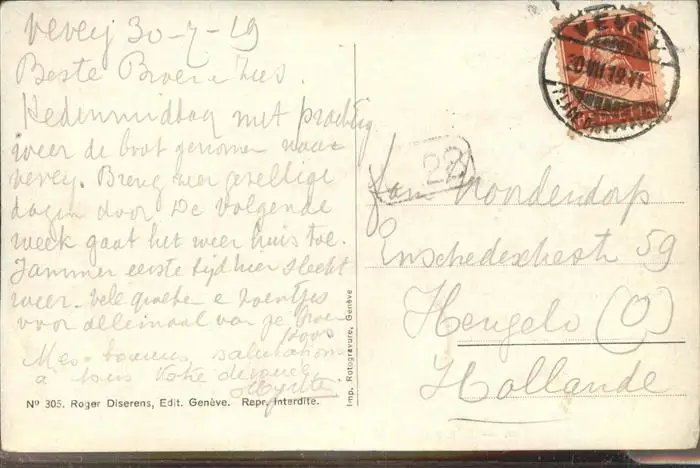 Vevey 30-7-19
Beste Broer & Zus.
Hedenmiddag met prachtig
weer de boot genomen naar
Vevey. Breng zeer gezellige
dagen door. De volgende
week gaat het weer huis toe.
Jammer eerste tijd hier slecht
weer. vele groeten e zoentjes
voor allemaal van je broe
Mes bonnes salutations
à tous Votre
VEVEY
22
Fam Noordendorp
Enschedeschestr 59
Hengelo (O)
Hollande
Imp. Rotogravure, Genève
Nº 305. Roger Diserens, Edit. Genève. Repr. Interdite.